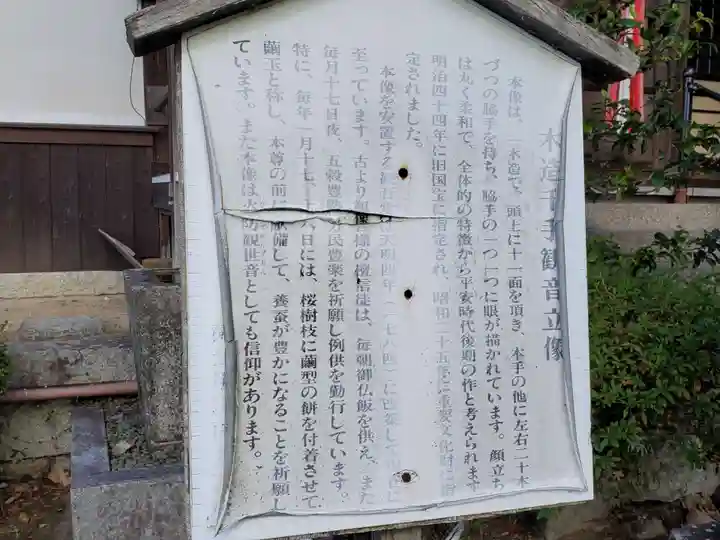 木造千手観音立像
本像は、一木造で、頭上に十一面を頂き、本手の他に左右二十本
づつの脇手を持ち、脇手の一つ一つに眼が描かれています。顔立ち
は丸く柔和で、全体的の特徴から平安時代後期の作と考えられます
明治四十四年に旧国宝に指定され、昭和二十五年に重要文化財に指
定されました。
本像を安置する 天明四年（一七八四）に
至っています。古より 様の檀信徒は、毎朝御仏飯を供え、また
毎月十七日夜、五穀豊 民豊楽を祈願し例供を勤行しています。
特に、毎年一月十七、十八日には、桜樹枝に繭型の餅を付着させて
繭玉と称し、本尊の前に献備して、養蚕が豊かになることを祈願し
ています。また本像は火防観世音としても信仰があります。